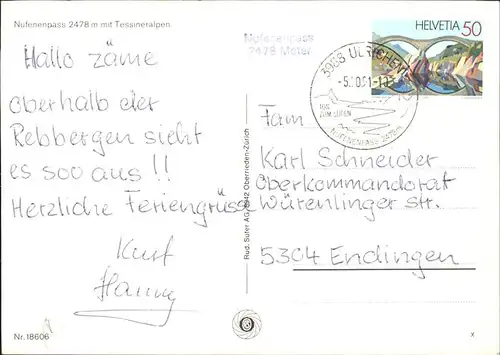 Nufenenpass 2478 m mit Tessineralpen
Hallo zäme
oberhalb der
Rebbergen sieht
es soo aus!!
Herzliche Feriengrüsse
Kurt
Hanny
Nr. 18606
Rud. Suter AG, 8942 Oberrieden-Zürich
Nufenenpass
2478 Meter
3988 ULRICHEN
NUFENENPASS 2478m
HELVETIA 50
Fam.
Karl Schneider
Oberkommandorat
Würenlinger str.
5304 Endingen
x